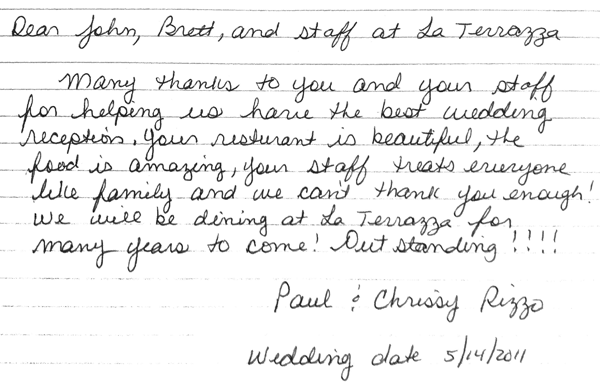 Dear John, Brett, and staff at La Terrazza
Many thanks to you and your staff
for helping us have the best wedding
reception. Your resturant is beautiful, the
food is amazing, your staff treats everyone
like family and we can't thank you enough!
We will be dining at La Terrazza for
many years to come! Outstanding!!!!
Paul & Chrissy Rizzo
Wedding date 5/14/2011